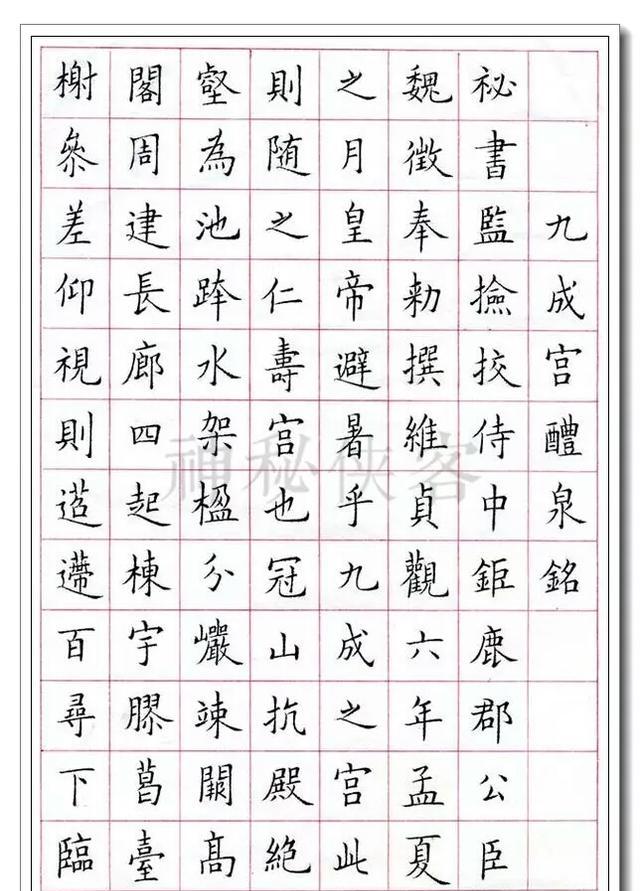 九成宫醴泉銘
祕書監撿挍侍中鉅鹿郡公臣
魏徵奉勑撰維貞觀六年孟夏
之月皇帝避暑乎九成之宫此
則随之仁壽宫也冠山抗殿絶
壑為池跨水架楹分巗竦闕髙
閣周建長廊四起棟宇膠葛臺
榭叅差仰視則迢遰百尋下臨
神秘侠客